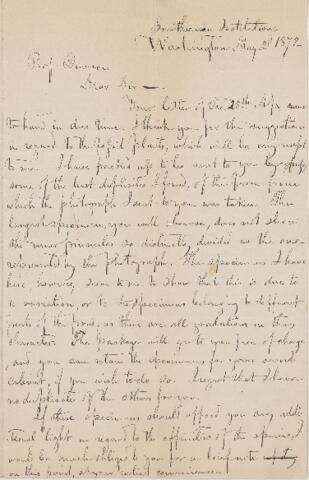 Smithsonian Institution
Washington May 2d 1872
Prof.
Dear Sir —
Your letter of the 25th came
to hand in due time. I thank you for the suggestions
in regard to the fossil plants, which will be very useful
to me. I have packed up to be sent to you by
some of the best duplicates I found, of the form from
which the photograph I sent to you was taken. The
largest specimen, you will observe, does not show
the minor pinnules so distinctly divided as the one
represented by the photograph. The specimens I have
here, however, seem to me to show that this is due to
a variation, or to the specimens belonging to different
parts of the frond, as there are all gradations in this
character. The package will go to you free of charge,
and you can retain the specimens for your own
cabinet, if you wish to do so. I regret that I have
no duplicates of the others for you.
If these specimens should afford you any addi-
tional light in regard to the affinities of the species, I
would be much obliged to you for a brief note
on this point, at your earliest convenience.